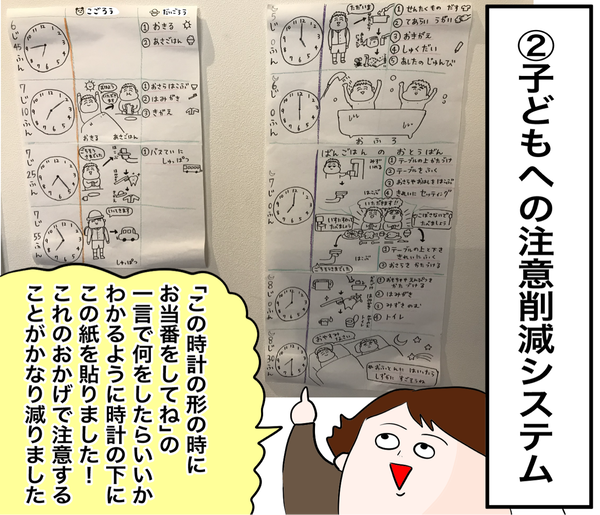 ②子どもへの注意削減システム
こごろう
だいごろう
6じ45ふん
①おきる
②あさごはん
7じ10ふん
おきる
あさごはん
①おさらはこぶ
②はみがき
③きがえ
7じ25ふん
①バスていに
しゅっぱつ
7じ55ふん
いってきます
しゅっぱつ
5じ0ふん
ただいま
①せんたくもの だす
②てあらい うがい
③おきがえ
④しゅくだい
⑤あしたの じゅんび
6じ0ふん
おふろ
ばんごはん の おとうばん
みずをいれる
はこぶ
①テーブルの上かたづけ
②テーブルをふく
③おさらやおはしをはこぶ
④きれいに セッティング
7じ0ふん
いただきます!!
はこぶ
①テーブルの上と下を
きれいにふく
②おさらを かたづける
8じ0ふん
②はみがき
③みずをのむ
④トイレ
8じ30ふん
おやすみなさい
おふとんに はいったら
しずかに すごそうね
「この時計の形の時に
お当番をしてね」の
一言で何をしたらいいか
わかるように時計の下に
この紙を貼りました！
これのおかげで注意する
ことがかなり減りました